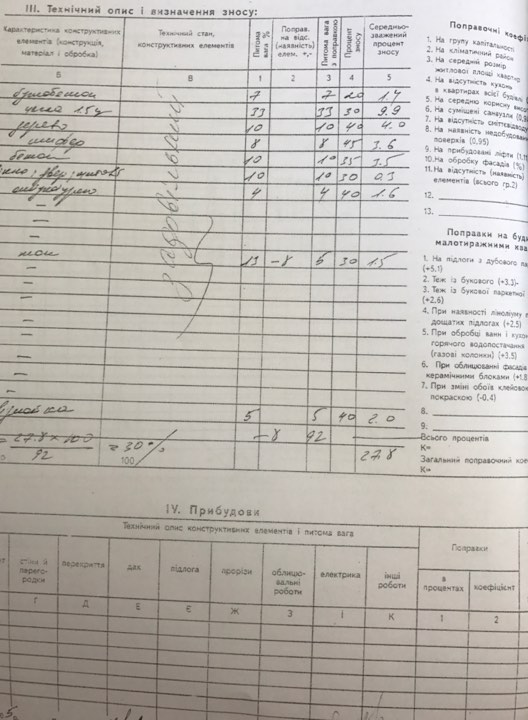 III. Технічний опис і визначення зносу:
Характеристика конструктивних елементів (конструкція, матеріал і обробка)
Технічний стан, конструктивних елементів
Питома вага %
Поправ. на відс. (наявність) елем. +,-
Питома вага з поправкою
Процент зносу
Середньозважений процент зносу
Б В 1 2 3 4 5
7 7 20 1.4
33 33 30 9.9
дерево 10 10 40 4.0
шифер 8 8 45 3.6
бетон 10 10 35 3.5
10 10 30 0.3
4 4 40 1.6
задовільний
13 -8 5 30 1.5
5 5 40 2.0
= 27.8 x 100 / 92 = 30% -8 92
100
27.8
Поправочні коефі
1. На групу капітальності
2. На кліматичний район
3. На середній розмір житлової площі квартир
4. На відсутність кухонь в квартирах всієї будівлі
5. На середню корисну висо
6. На суміщені санвузли (0,9
7. На відсутність сміттєвідвод
8. На наявність недобудован поверхів (0,95)
9. На прибудовані ліфти (1,1
10. На обробку фасадів (%)
11. На відсутність (наявність) елементів (всього гр.2)
12.
13.
Поправки на буди
малотиражними ква
1. На підлоги з дубового па (+5,1)
2. Теж із букового (+3,3)-
3. Теж із букової паркетної (+2,6)
4. При наявності лінолiуму п дощатих підлогах (+2,5)
5. При обробці ванн і кухон горячого водопостачання (газові колонки) (+3.5)
6. При облицюванні фасадів керамічними блоками (+1.8
7. При зміні обоїв клейовою покраскою (-0,4)
8.
9.
Всього процентів
К=
Загальний поправочний кое
К=
IV. Прибудови
Технічний опис конструктивних елементів і питома вага
Поправки
стіни й перегородки
перекриття
дах
підлога
прорізи
облицювальні роботи
електрика
інші роботи
в процентах
коефіцієнт
Г Д Е Є Ж З І К 1 2